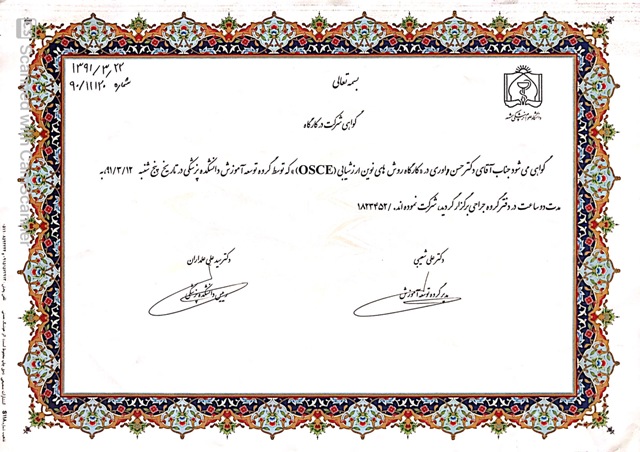 ۱۳۹۱/۳/۲۲
شماره ۹۰/۱۱۱۲۰
بسمه تعالی
گواهی شرکت در کارگاه
گواهی می شود جناب آقای دکتر حسن واوری در «کارگاه روش های نوین ارزشیابی (OSCE)» که توسط گروه توسعه آموزش دانشکده پزشکی در تاریخ پنج شنبه ۹۱/۳/۱۲ به
مدت دو ساعت در دفتر گروه جراحی برگزار گردید، شرکت نموده اند. /۱۸۲۳۴۵۲
دکتر علی شیبی
مدیر گروه توسعه آموزش
دکتر سید علی علمداران
رییس دانشکده پزشکی
Scanned with CamScanner